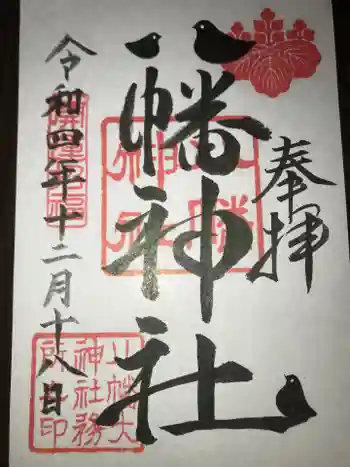 奉拝
八幡神社
令和四年十二月十八日
八幡大
神社務
所之印